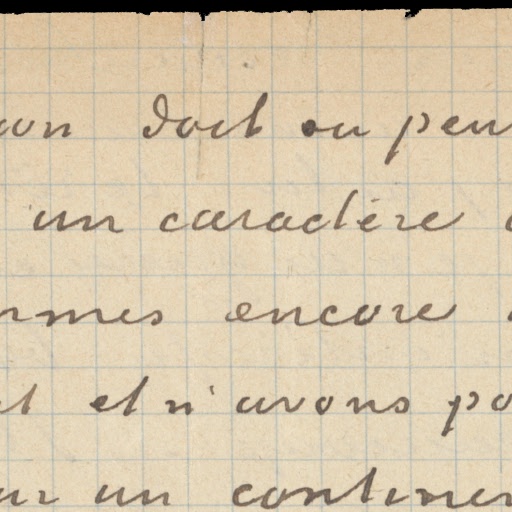 doit ou peu
un caractère
rmes encore
et n'avons po
un continen